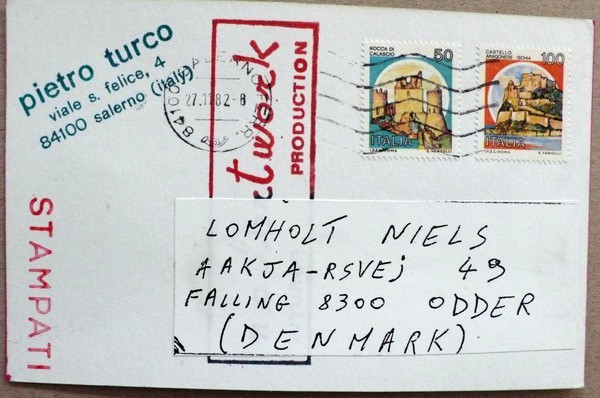 pietro turco
viale s. felice, 4
84100 salerno (italy)
84100 SALERNO
27.11.82-8
twork
PRODUCTION
ROCCA DI
CALASCIO
50
ITALIA
I.P.Z.S. ROMA
E. VANGELLI
CASTELLO
ARAGONESE ISCHIA
100
ITALIA
I.P.Z.S. ROMA
E. VANGELLI
STAMPATI
LOMHOLT NIELS
AAKJA-RSVEJ 49
FALLING 8300 ODDER
(DENMARK)